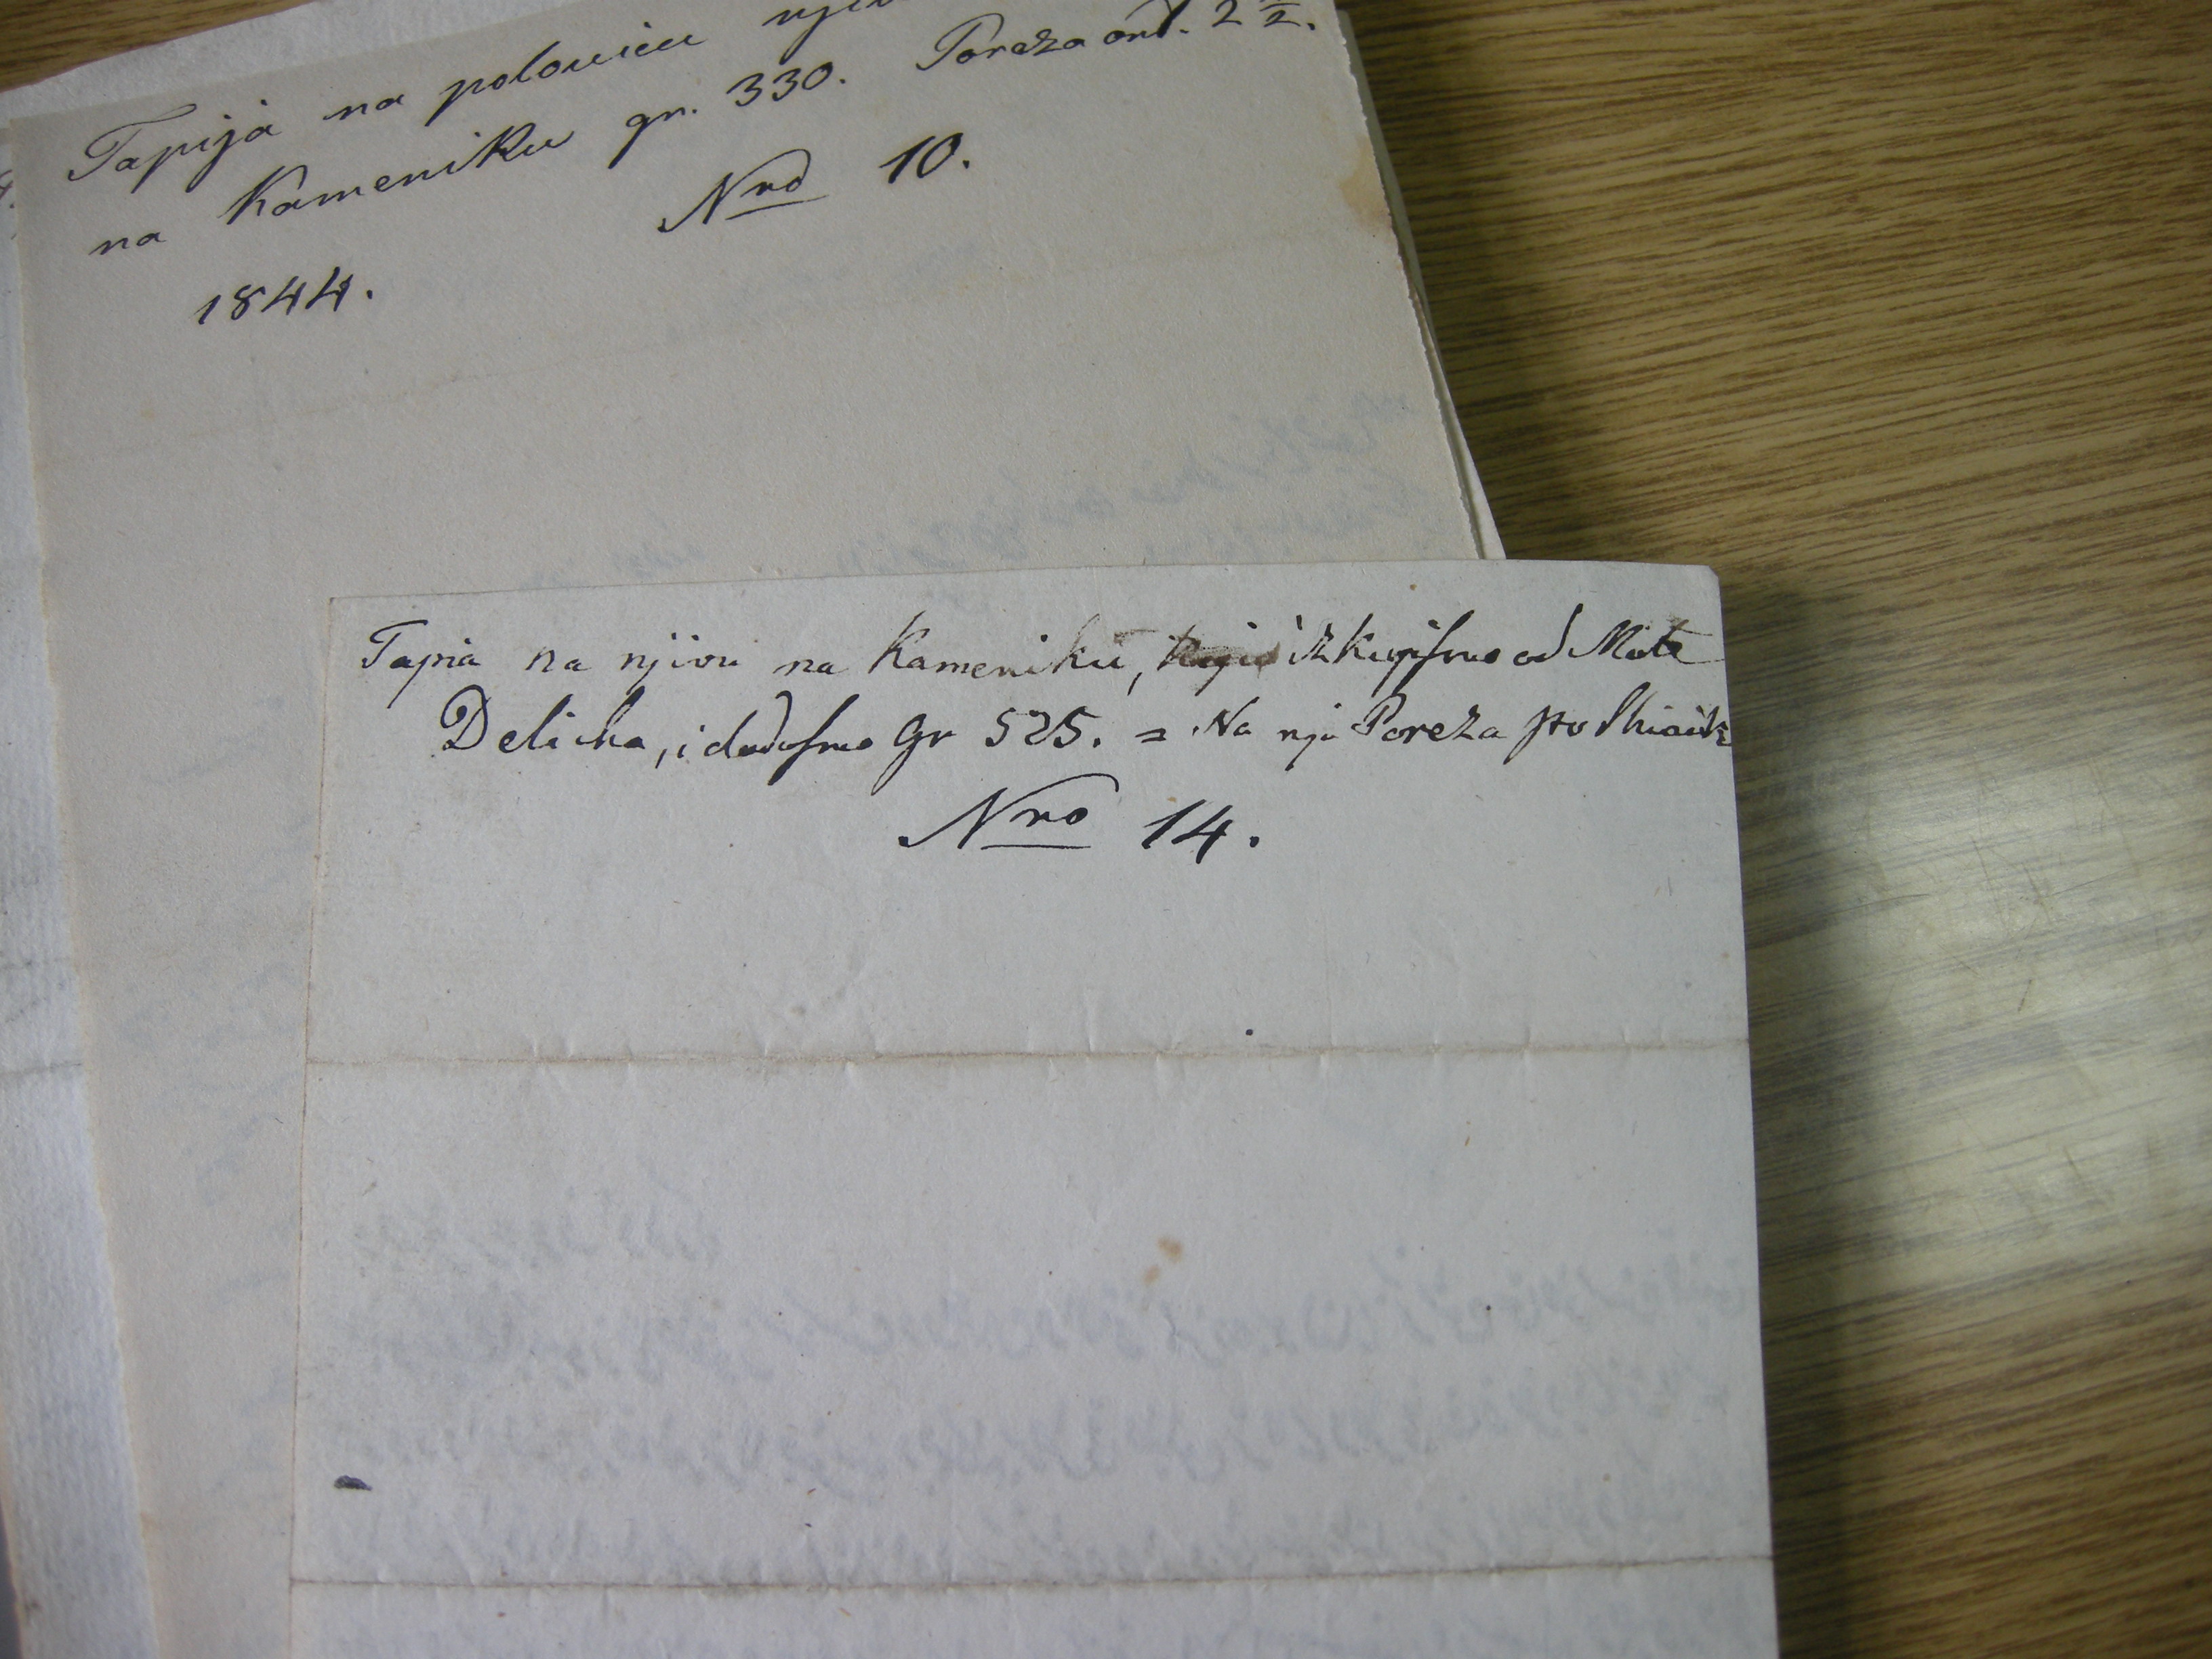 Tapija na polovicu
na Kameniku gr. 330. Poreza ord. 2 1/2.
Nro 10.
1844.
Tapia na njivu na Kameniku, koju izkupismo od Mate
Delicha, i dadosmo Gr 525. = Na nju Poreza
Nro 14.